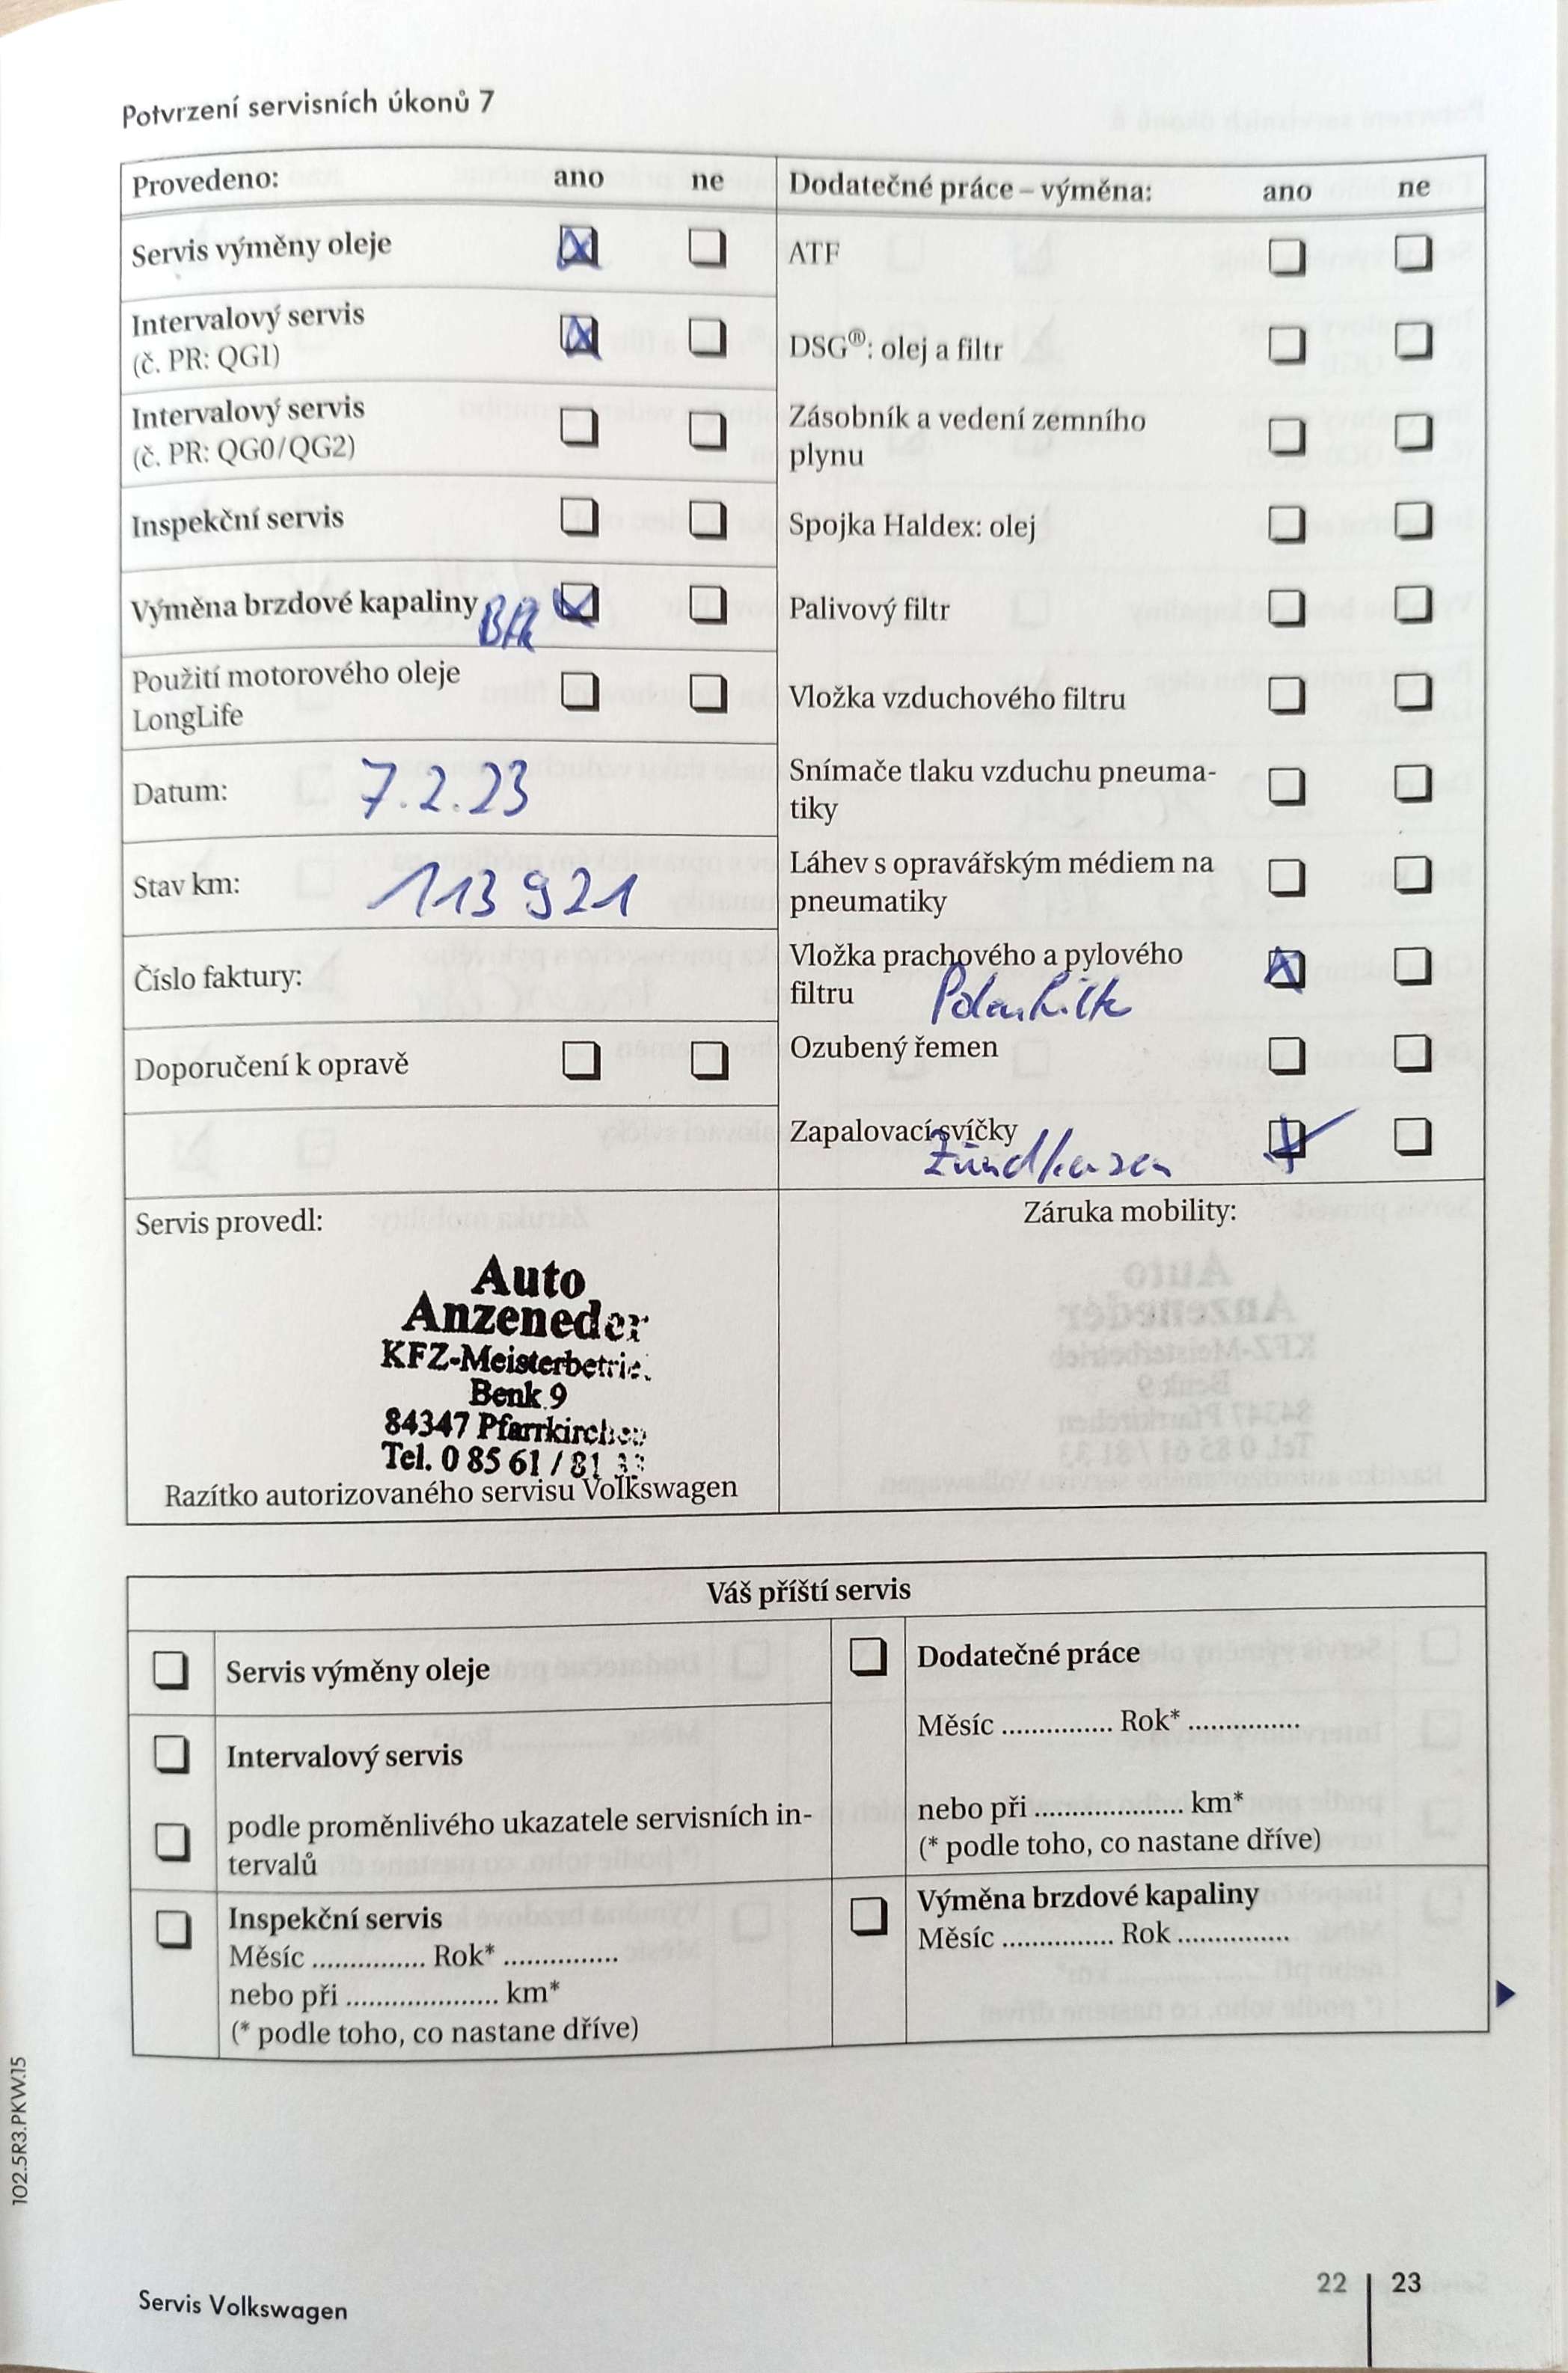 Potvrzení servisních úkonů 7
Provedeno: ano ne
Servis výměny oleje
Intervalový servis
(č. PR: QG1)
Intervalový servis
(č. PR: QG0/QG2)
Inspekční servis
Výměna brzdové kapaliny
Použití motorového oleje
LongLife
Datum: 7.2.23
Stav km: 113 921
Číslo faktury:
Doporučení k opravě
Servis provedl:
Auto
Anzeneder
KFZ-Meisterbetrieb
Benk 9
84347 Pfarrkirchen
Tel. 0 85 61 / 81 33
Razítko autorizovaného servisu Volkswagen
Dodatečné práce – výměna: ano ne
ATF
DSG®: olej a filtr
Zásobník a vedení zemního
plynu
Spojka Haldex: olej
Palivový filtr
Vložka vzduchového filtru
Snímače tlaku vzduchu pneuma-
tiky
Láhev s opravářským médiem na
pneumatiky
Vložka prachového a pylového
filtru
Ozubený řemen
Zapalovací svíčky
Zündkerzen
Záruka mobility:
Váš příští servis
Servis výměny oleje
Intervalový servis
podle proměnlivého ukazatele servisních in-
tervalů
Inspekční servis
Měsíc ............... Rok* ...............
nebo při .................... km*
(* podle toho, co nastane dříve)
Dodatečné práce
Měsíc ............... Rok* ...............
nebo při .................... km*
(* podle toho, co nastane dříve)
Výměna brzdové kapaliny
Měsíc ............... Rok ...............
102.5R3.PKW.15
Servis Volkswagen
22 23